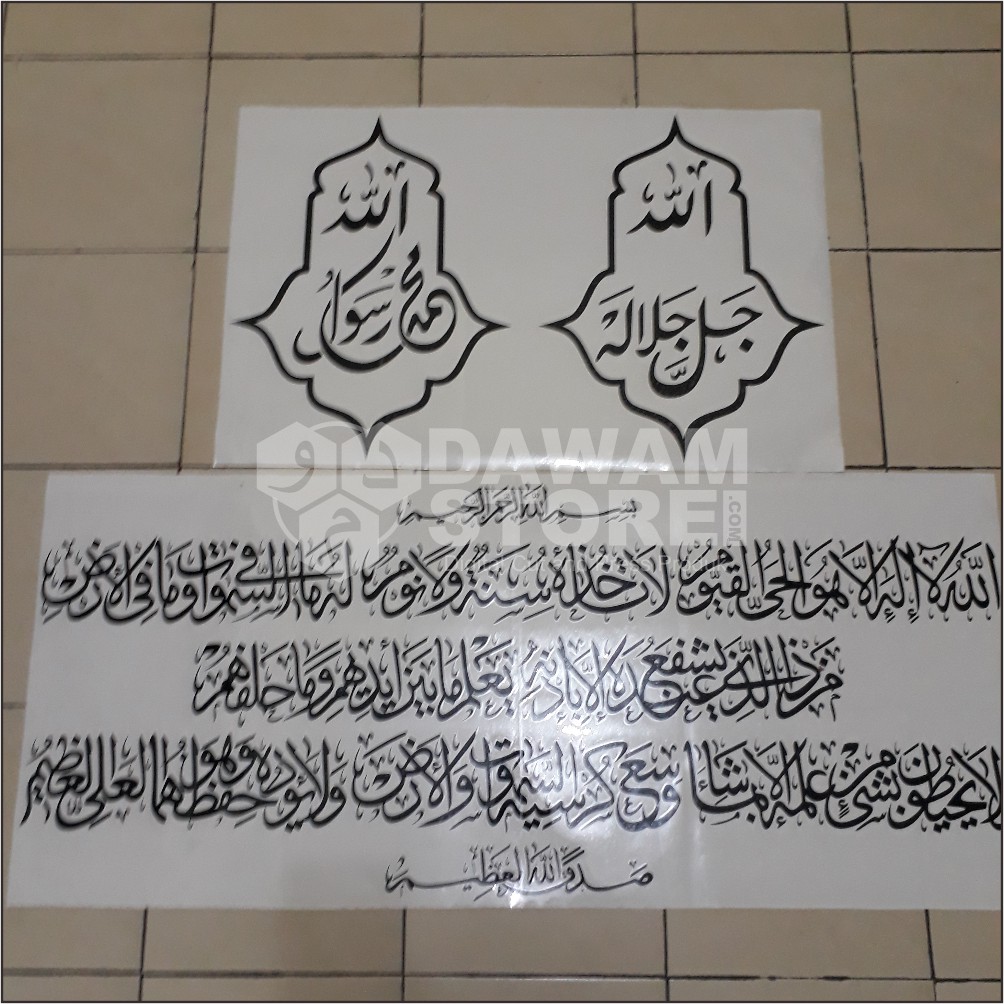 الله
جل جلاله
الله
محمد رسول
DAWAM
STORE
.COM
بسم الله الرحمن الرحيم
الله لا إله إلا هو الحي القيوم لا تأخذه سنة ولا نوم له ما في السموات وما في الأرض
من ذا الذي يشفع عنده إلا بإذنه يعلم ما بين أيديهم وما خلفهم
ولا يحيطون بشيء من علمه إلا بما شاء وسع كرسيه السموات والأرض ولا يؤده حفظهما وهو العلي العظيم
صدق الله العظيم